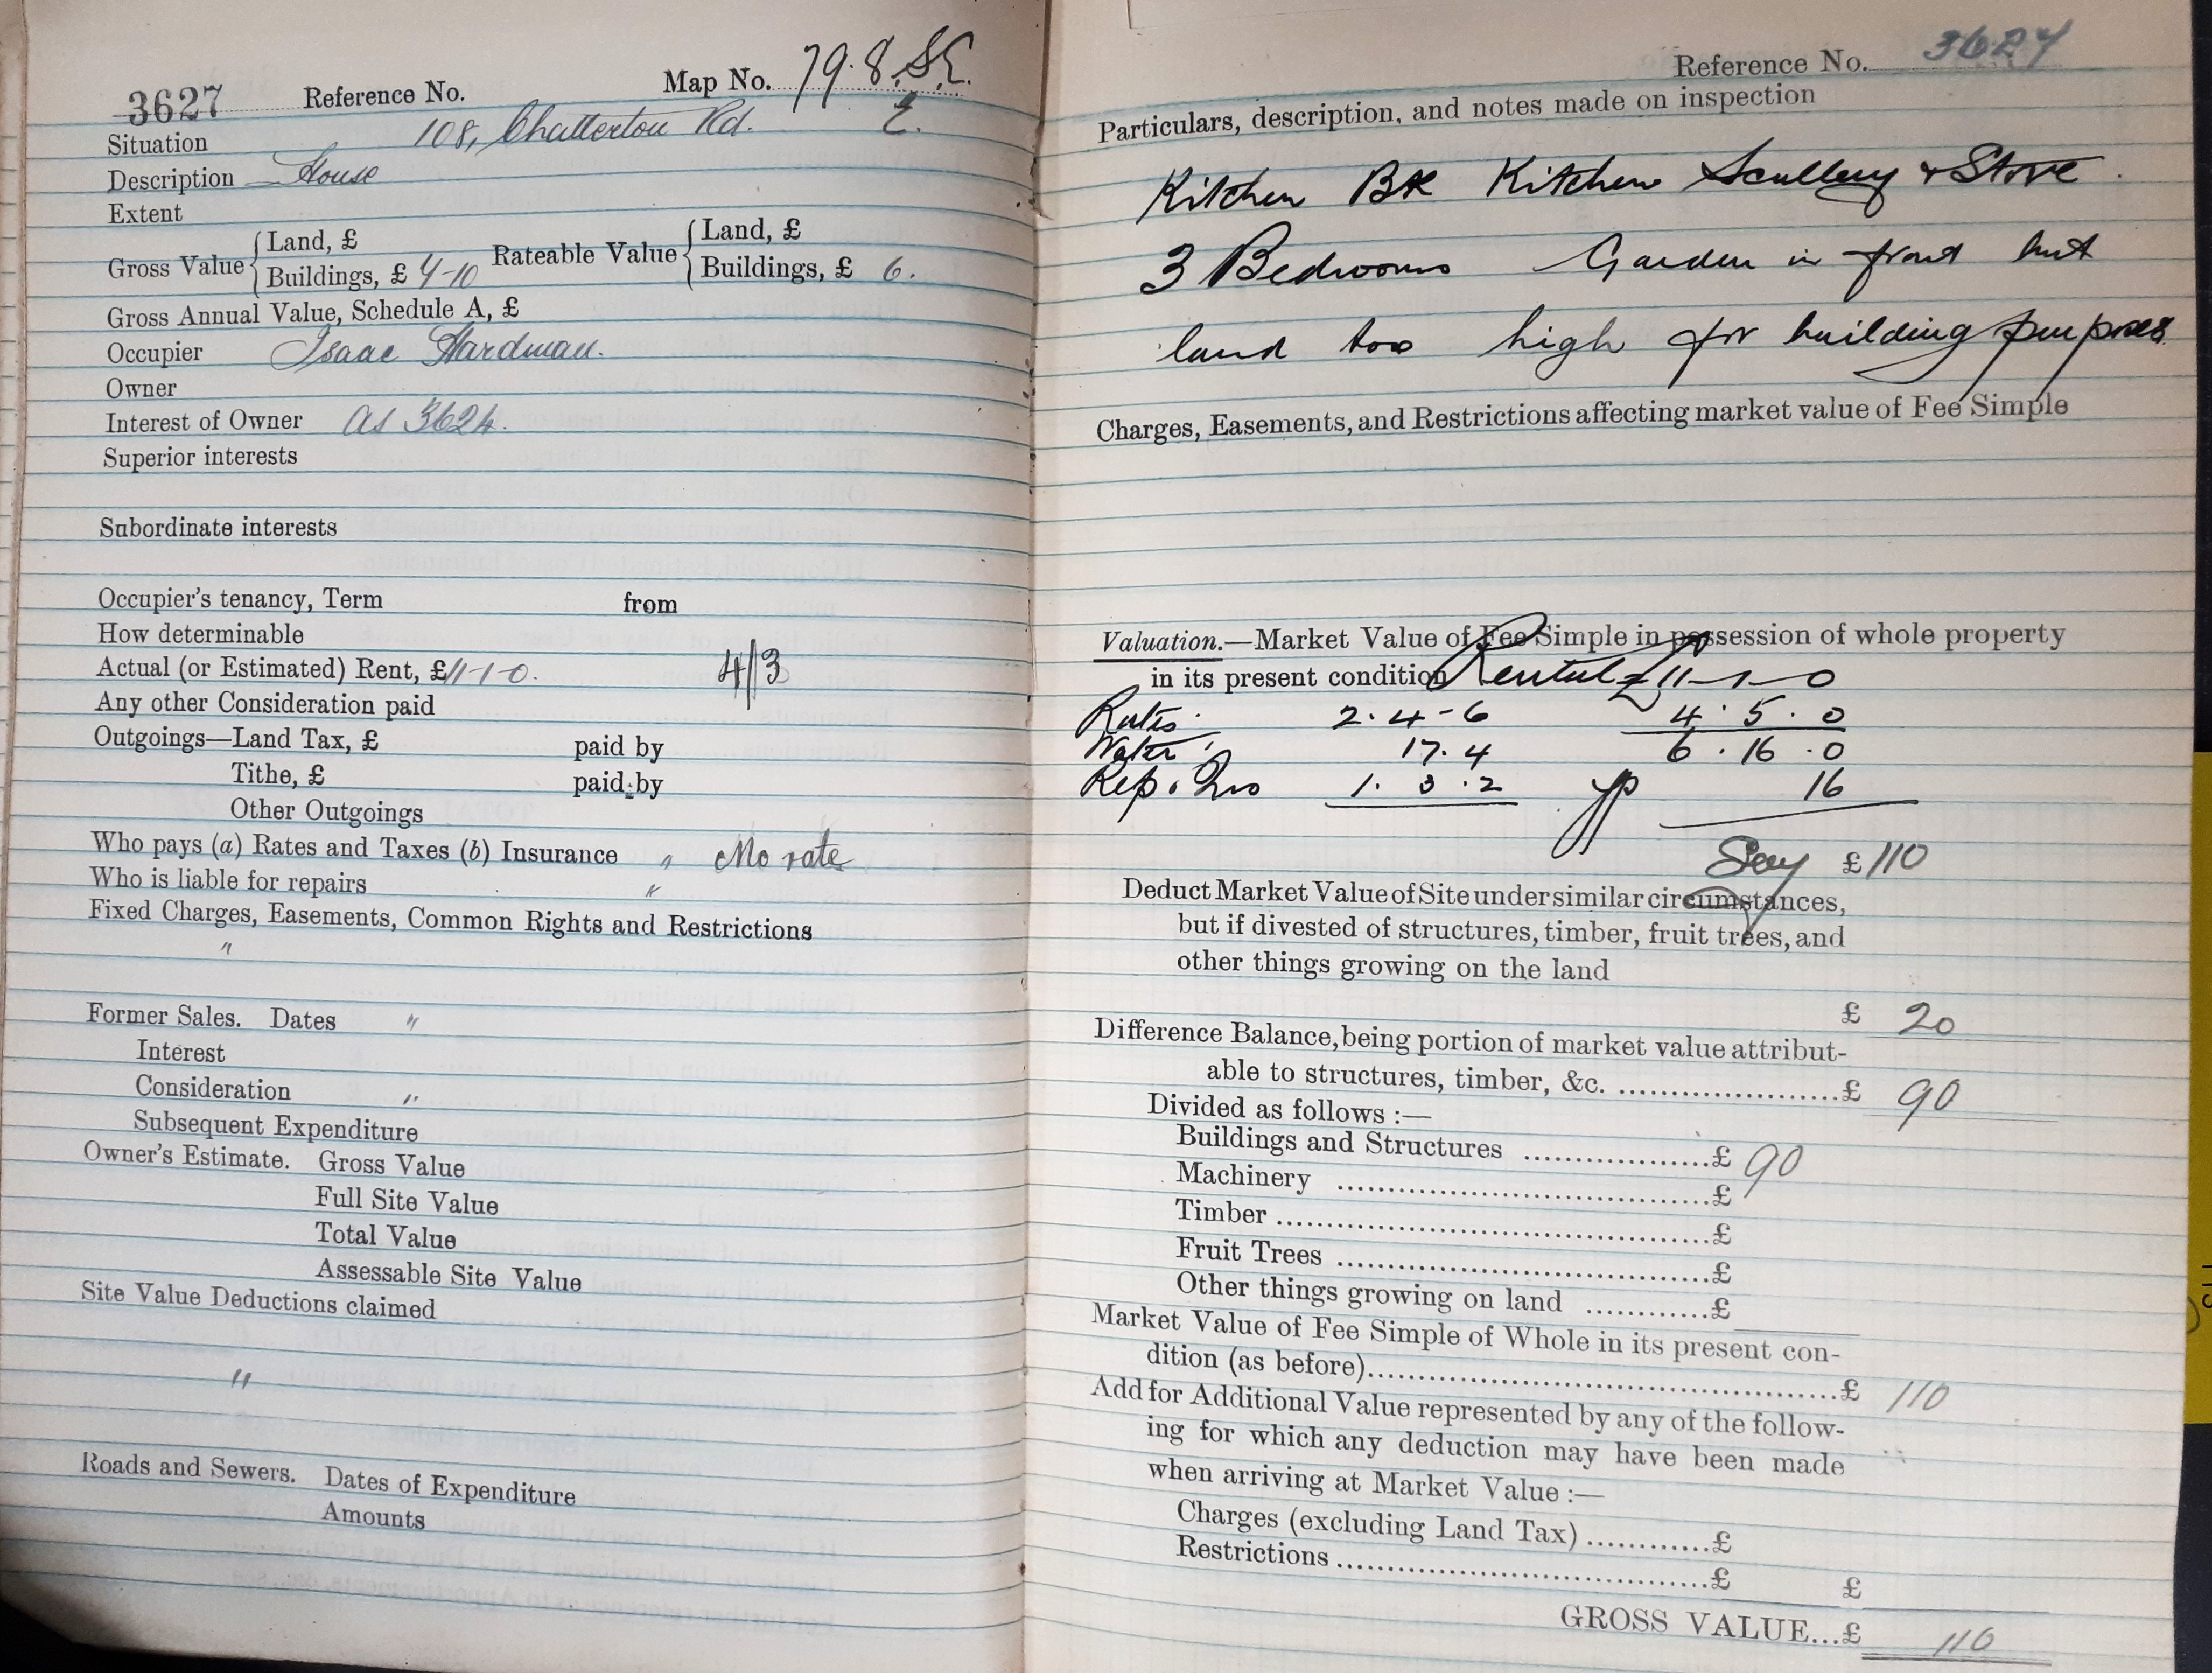 3627 Reference No. Map No. 79.8.SE.
Situation 108, Chatterton Rd. E.
Description House
Extent
Gross Value { Land, £ Rateable Value { Land, £
Buildings, £ 7-10 Buildings, £ 6.
Gross Annual Value, Schedule A, £
Occupier Isaac Hardman.
Owner
Interest of Owner as 3624.
Superior interests
Subordinate interests
Occupier's tenancy, Term from
How determinable
Actual (or Estimated) Rent, £ 11-1-0. 4/3
Any other Consideration paid
Outgoings—Land Tax, £ paid by
Tithe, £ paid by
Other Outgoings
Who pays (a) Rates and Taxes (b) Insurance " No rate
Who is liable for repairs "
Fixed Charges, Easements, Common Rights and Restrictions
"
Former Sales. Dates "
Interest
Consideration "
Subsequent Expenditure
Owner's Estimate. Gross Value
Full Site Value
Total Value
Assessable Site Value
Site Value Deductions claimed
"
Roads and Sewers. Dates of Expenditure
Amounts
Reference No. 3627
Particulars, description, and notes made on inspection
Kitchen Bk Kitchen Scullery & Store.
3 Bedrooms Garden in front but
land too high for building purposes
Charges, Easements, and Restrictions affecting market value of Fee Simple
Valuation.—Market Value of Fee Simple in possession of whole property
in its present condition Rental £ 11-1-0
Rates. 2.4-6 4.5.0
Water. 17.4 6.16.0
Rep. Ins 1.3.2 yp 16
Say £110
Deduct Market Value of Site under similar circumstances,
but if divested of structures, timber, fruit trees, and
other things growing on the land
£ 20
Difference Balance, being portion of market value attribut-
able to structures, timber, &c. ........................£ 90
Divided as follows :—
Buildings and Structures ...................£ 90
Machinery .......................................£
Timber .............................................£
Fruit Trees .......................................£
Other things growing on land ............£
Market Value of Fee Simple of Whole in its present con-
dition (as before)....................................................£ 110
Add for Additional Value represented by any of the follow-
ing for which any deduction may have been made
when arriving at Market Value :—
Charges (excluding Land Tax) ............£
Restrictions .......................................£ £
GROSS VALUE...£ 110